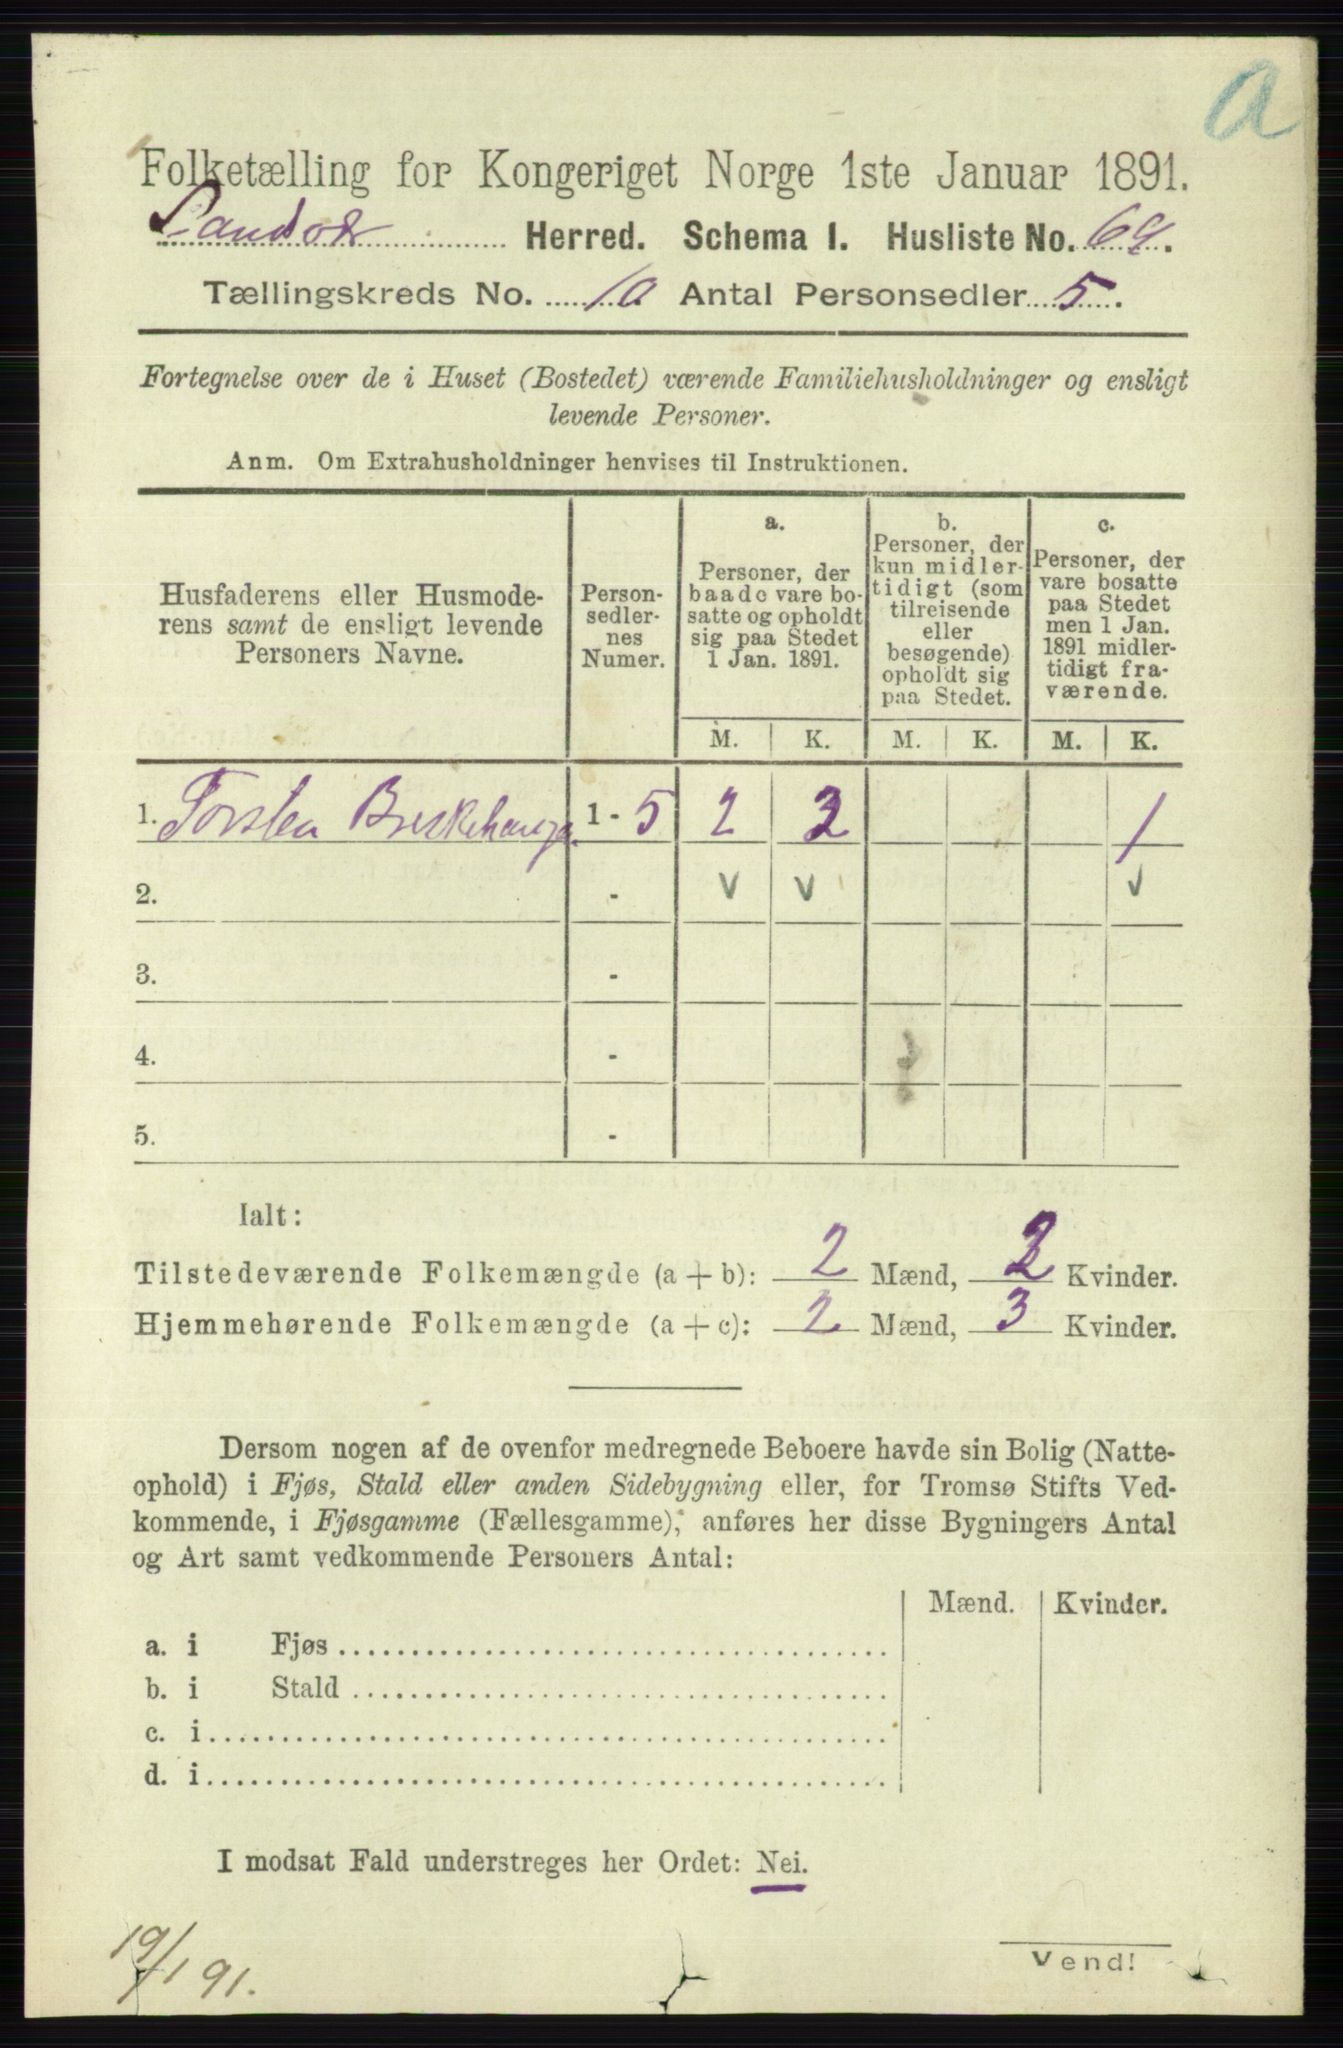 a
Folketælling for Kongeriget Norge 1ste Januar 1891.
Sandsvær Herred. Schema I. Husliste No. 69.
Tællingskreds No. 10 Antal Personsedler 5.
Fortegnelse over de i Huset (Bostedet) værende Familiehusholdninger og ensligt
levende Personer.
Anm. Om Extrahusholdninger henvises til Instruktionen.
Husfaderens eller Husmode-
rens samt de ensligt levende
Personers Navne.
Person-
sedler-
nes
Numer.
a.
Personer, der
baade vare bo-
satte og opholdt
sig paa Stedet
1 Jan. 1891.
b.
Personer, der
kun midler-
tidigt (som
tilreisende
eller
besøgende)
opholdt sig
paa Stedet.
c.
Personer, der
vare bosatte
paa Stedet
men 1 Jan.
1891 midler-
tidigt fra-
værende.
M. K. M. K. M. K.
1. Torsten 1 - 5 2 2 1
2. - v v v
3. -
4. -
5. -
Ialt:
Tilstedeværende Folkemængde (a + b): 2 Mænd, 2 Kvinder.
Hjemmehørende Folkemængde (a + c): 2 Mænd, 3 Kvinder.
Dersom nogen af de ovenfor medregnede Beboere havde sin Bolig (Natte-
ophold) i Fjøs, Stald eller anden Sidebygning eller, for Tromsø Stifts Ved-
kommende, i Fjøsgamme (Fællesgamme), anføres her disse Bygningers Antal
og Art samt vedkommende Personers Antal:
Mænd. Kvinder.
a. i Fjøs
b. i Stald
c. i
d. i
I modsat Fald understreges her Ordet: Nei.
19/1 91.
Vend!